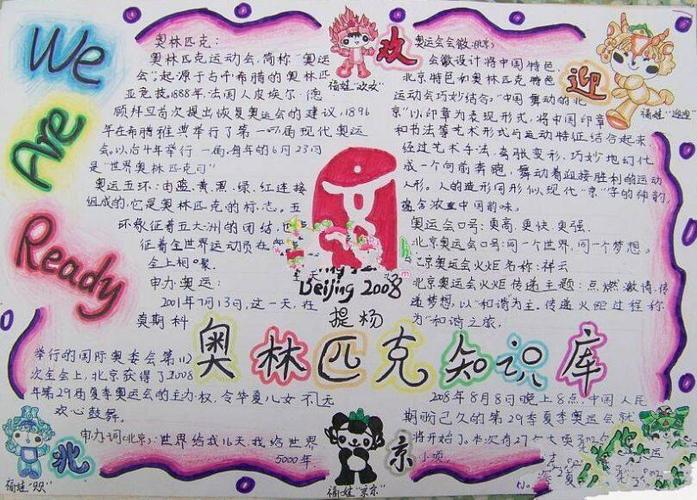 We
Are
Ready
奥林匹克:
奥林匹克运动会,简称"奥运
会;起源于古希腊的奥林匹
亚竞技,1888年,法国人皮埃尔·德
顾拜旦首次提出恢复奥运会的建议,1896
年在希腊雅典举行了第一届现代奥运
会,以后4年举行一届,每年的6月23日
是"世界奥林匹克日"
奥运五环:由蓝、黄、黑、绿、红连接
组成的,它是奥林匹克的标志。五
环象征着五大洲的团结,
征着全世界运动员在
会上相聚
申办奥运:
2001年7月13日,这一天,在
莫斯科
举行的国际奥委会第112
次全会上,北京获得了2008
年第29届夏季奥运会的主办权,令华夏儿女不
欢心鼓舞。
申办词(北京):世界给我16天,我给世界
5000年
福娃"欢欢"
欢
迎
福娃"迎迎"
奥运会会徽:(北京)
会徽设计将中国特色、
北京特色和奥林匹克特色
运动会巧妙结合。"中国 舞动的北
京"以印章为表现形式,将中国印章
和书法等艺术形式与运动特征结合起来
经过艺术手法,夸张变形,巧妙地幻化
成一个向前奔跑,舞动着迎接胜利的运动
人形。人的造型同形似现代"京"字的神韵,
蕴含浓重中国韵味。
奥运会口号:更高、更快、更强。
北京奥运会口号:同一个世界,同一个梦想。
北京奥运会火炬名称:祥云
北京奥运会火炬传递主题:点燃激情,传
递梦想,以"和谐为主,传递火炬过程称
为"和谐之旅。
Beijing 2008
提杨
奥林匹克知识库
2008年8月8日晚上8点,中国人民
期盼已久的第29季夏季奥运会就
将开始了,本次有27个大项,302个
小项。
北
福娃"贝贝"
福娃"京京"
京